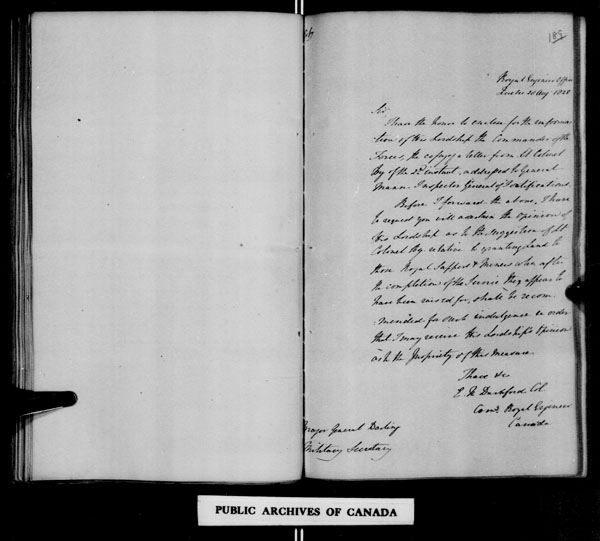 189
Royal Engineer Office
Quebec Augt 1828
Sir
I have the honor to enclose for the informa
tion of His Lordship the Commander of the
Forces, the copy of a letter from Lt Colonel
By of the 2d instant, addressed to General
Mann Inspector General of Fortifications
Before I forward the above, I have
to request you will ascertain the opinion of
His Lordship as to the suggestion of Lt
Colonel By relative to granting Land to
those Royal Sappers & Miners who after
the completion of the Service they appear to
have been raised for, shall be recom
mended for such indulgence in order
that I may receive His Lordship's Opinion
as to the Propriety of this Measure.
I have &c
E. W Durnford Col
Comg Royal Engineer
Canada
Major General Darling
Military Secretary
PUBLIC ARCHIVES OF CANADA